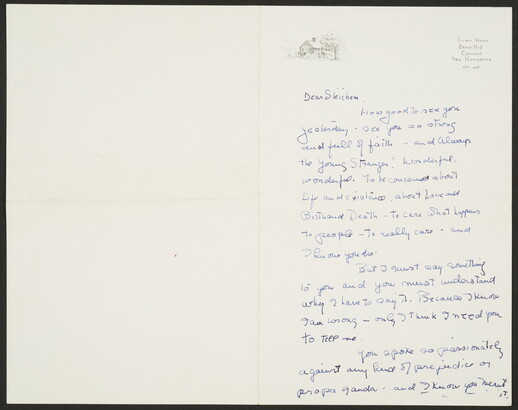 Beech Hill
New Hampshire
Dear Steichen
How good to see you
yesterday - see you so strong
and full of faith - and always
the Young Stranger! Wonderful,
wonderful. To be concerned about
Life and existence, about Love and
Birth and Death - to care what happens
to people - to really care - and
I know you do.
But I must say something
to you and you must understand
why I have to say it. Because I know
I am wrong - only I think I need you
to tell me.
You spoke so passionately
against any kind of prejudice or
propaganda - and I know you meant
it.